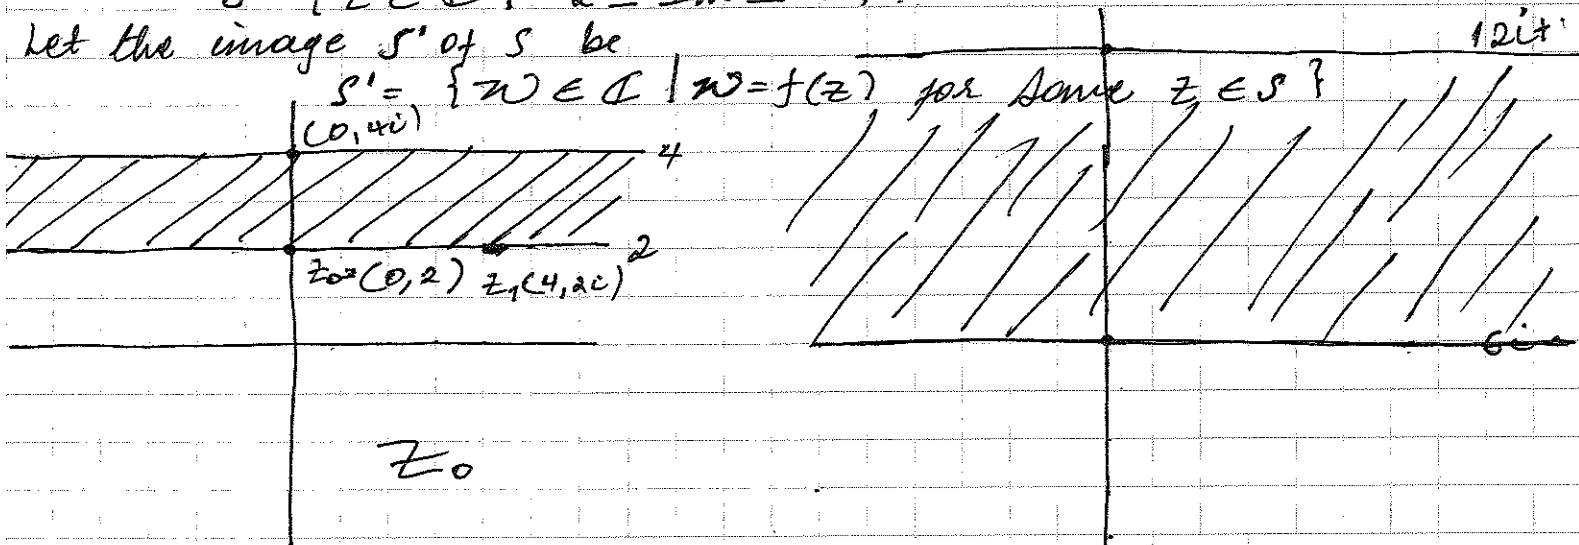 Let the image S' of S be
12i+
S' = {w ∈ ℂ | w = f(z) for some z ∈ S}
(0,4i)
4
2
z₀=(0,2) z₁(4,2i)
6i
Z₀